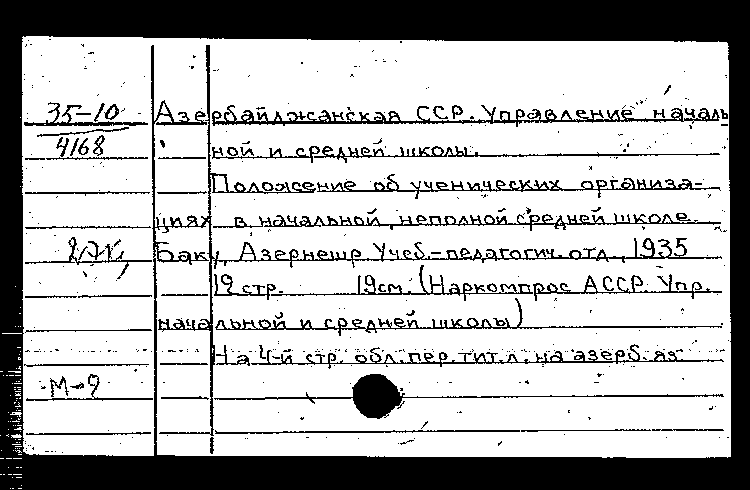 35-10 Азербайджанская ССР. Управление началь
4168 ной и средней школы.
Положение об ученических организа-
циях в начальной, неполной средней школе.
Баку, Азернешр. Учеб.-педагогич. отд., 1935
12 стр. 19 см. (Наркомпрос АССР. Упр.
начальной и средней школы)
На 4-й стр. обл. пер. тит. л. на азерб. яз.
М-9